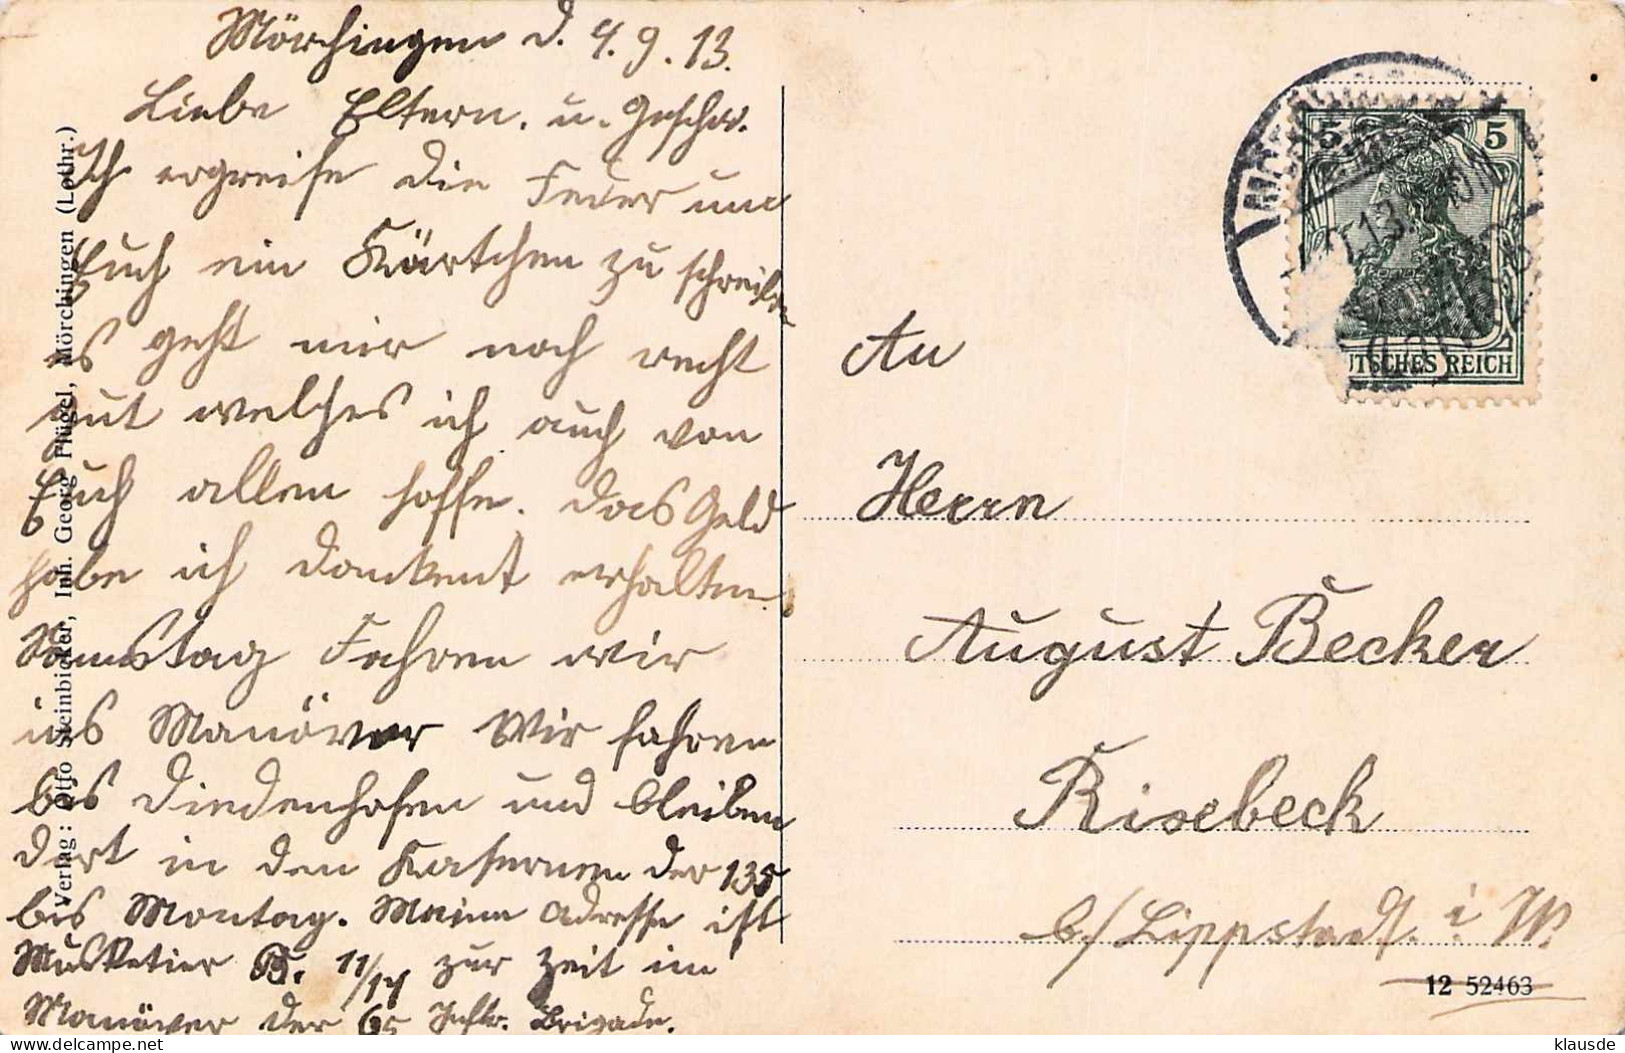 Mörchingen d. 4.9.13.
Liebe Eltern. u. Geschw.
Ich ergreife die Feder um
Euch ein Kärtchen zu schreiben
es geht mir noch recht
gut welches ich auch von
Euch allen hoffe. das Geld
habe ich dankent erhalten
Samstag Fahren wir
ins Manöver Wir fahren
bis Diedenhofen und bleiben
dort in den Kasernen der 135
bis Montag. Meine Adresse ist
Musketier B. 11/17 zur Zeit im
Manöver der 65 Inftr. Brigade.
Verlag: Otto Steinbicker, Inh. Georg Flügel, Mörchingen (Lothr.)
5 5
DEUTSCHES REICH
An
Herrn
August Becker
Risebeck
b/ Lippstadt. i W.
12 52463
klausde